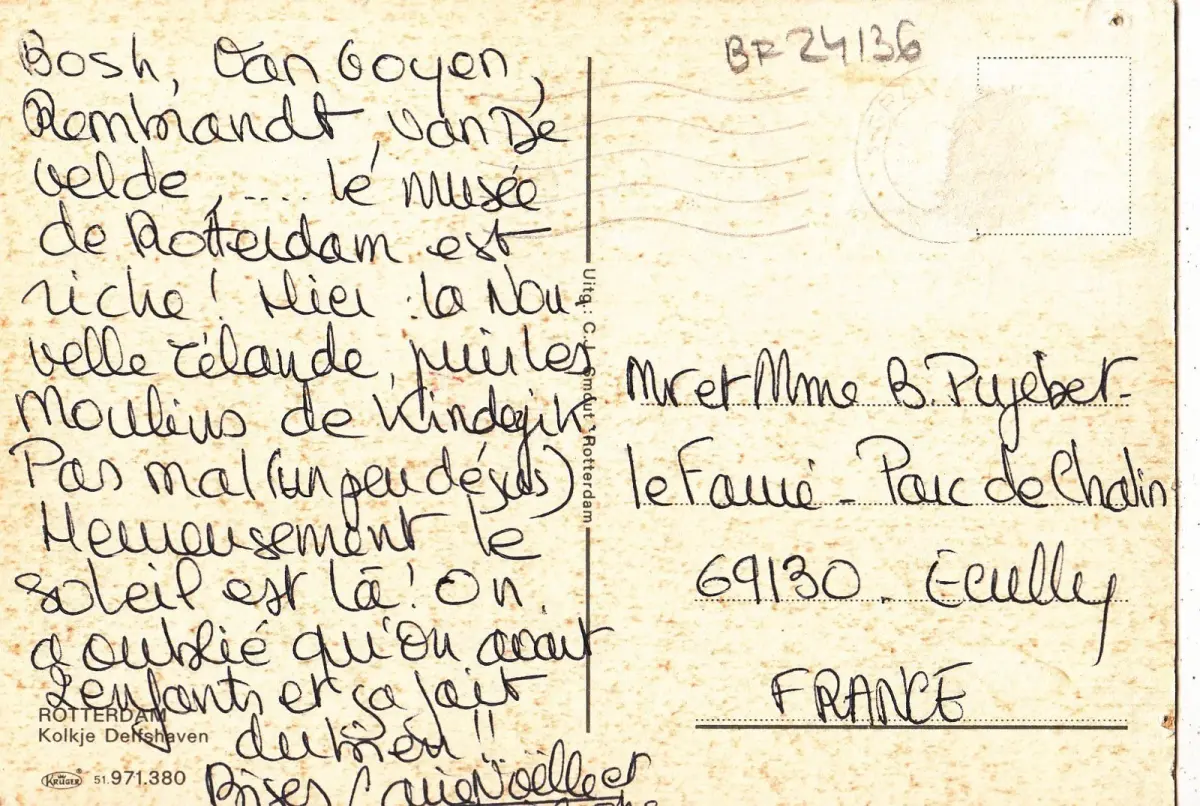 Bosh, Van Goyen,
Rembrandt, Van De
velde, .... le musée
de Rotterdam est
riche ! Hier : la Nou-
velle Zélande, puis les
Moulins de Kindegik
Pas mal (un peu déçus)
Heureusement le
soleil est là ! On
a oublié qu'on avait
2 enfants et ça fait
du bien !!
Bises Marie Noëlle et
BF 24136
Mr et Mme B. Pujebet-
le Fauré - Parc de Chalin
69130. Ecully
FRANCE
Uitg.: C. J. Smout - Rotterdam
ROTTERDAM
Kolkje Delfshaven
KRÜGER 51.971.380